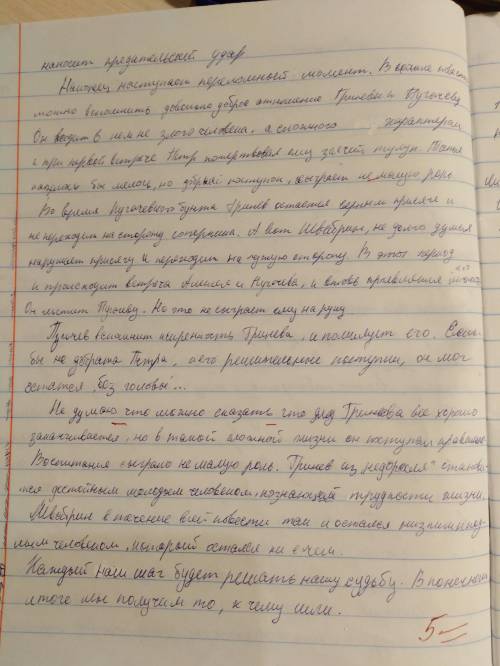 наносит предательский удар
Наконец наступает переломный момент. В начале повести
можно вспомнить довольно доброе отношение Гринёва к Пугачеву
Он видит в нем не злого человека, а сложного характером
и при первой встрече Пётр пожертвовал ему заячий тулуп.
казалось бы мелочь, но добрый поступок, сыграет не малую роль
Во время Пугачевского бунта Гринёв остается верным присяге и
не переходит на сторону соперника. А вот Швабрин, не долго думая
нарушает присягу и переходит на чужую сторону. В этот период
и происходит встреча Алексея и Пугачева, и вновь проявляется
Он льстит Пугачеву. Но это не сыграет ему на руку
Пугачев вспомнит искренность Гринева, и помилует его. Если
бы не доброта Петра, и его решительные поступки, он мог
остатся "без головы"...
Не думаю что можно сказать что для Гринева все хорошо
заканчивается, но в такой сложной жизни он поступал правильно
Воспитания сыграло не малую роль. Гринев из "недоросля" станови-
тся достойным молодым человеком, познающий трудности жизни.
Швабрин в течение всей повести так и остался низким и под-
лым человеком, который остался ни с чем.
Каждый наш шаг будет решать нашу судьбу. В конечном
итоге мы получим то, к чему шли.
5-